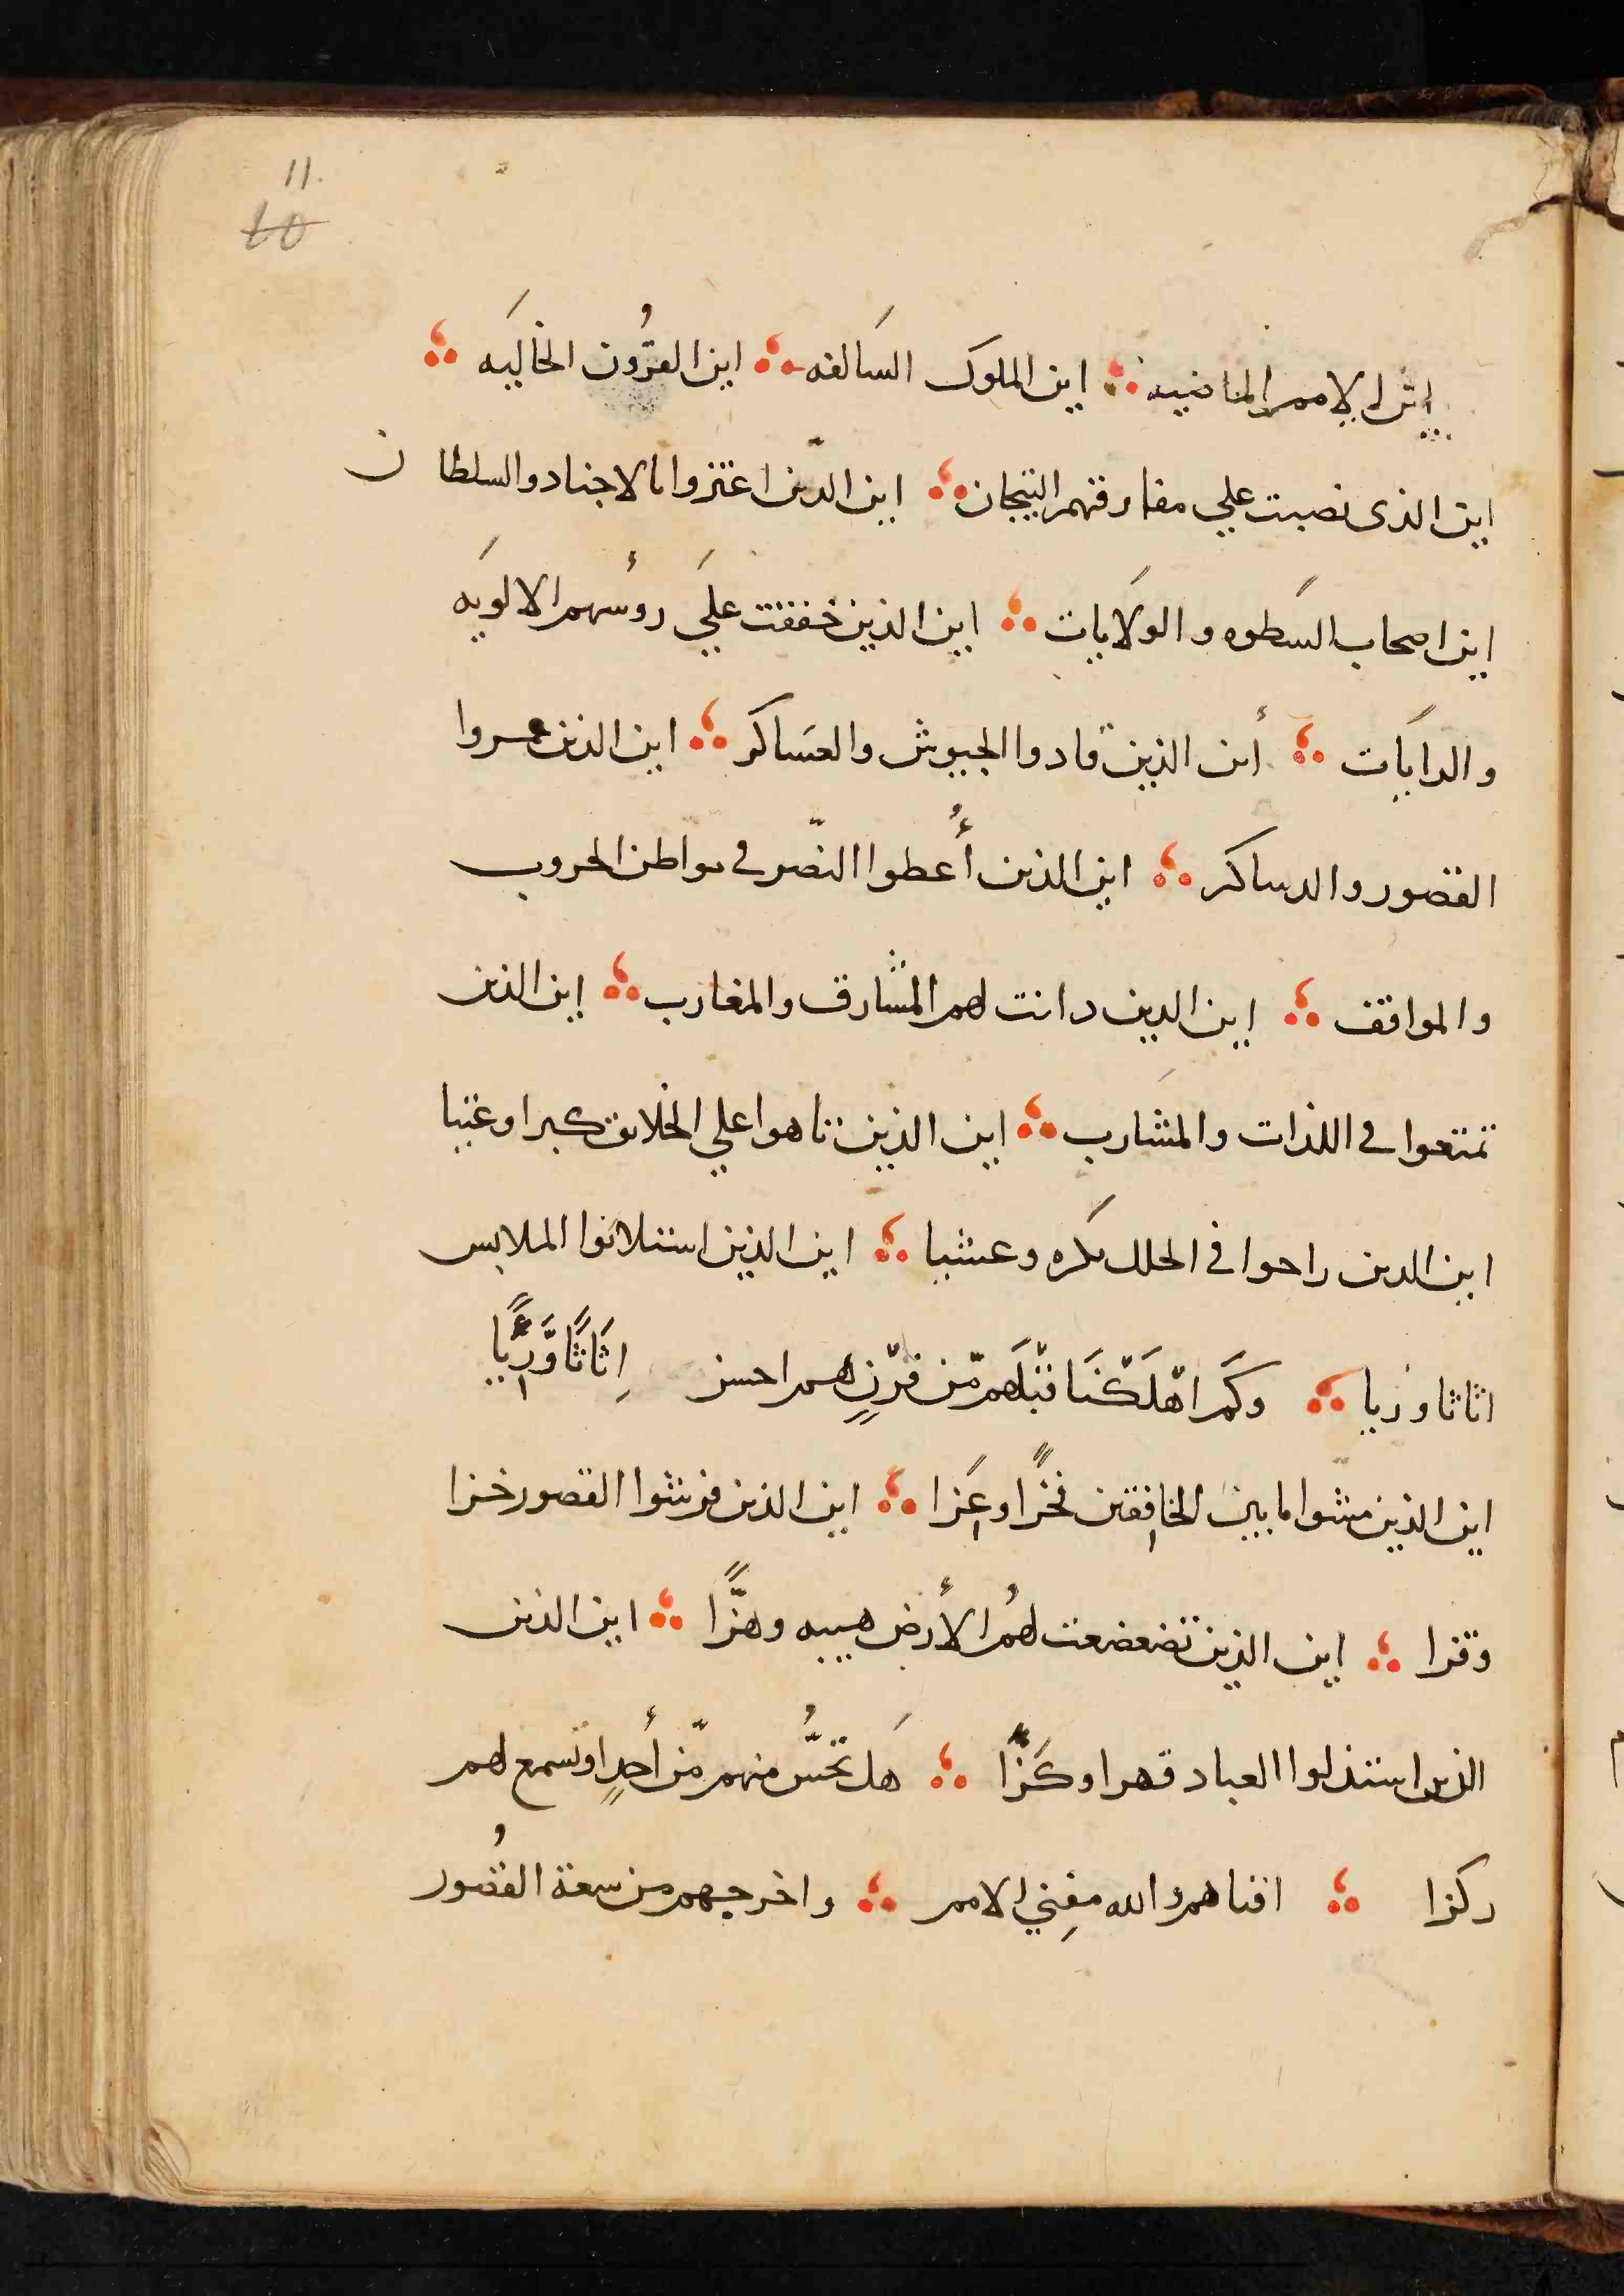 11.
10
اين الامم الماضيه ؞ اين الملوك السَالفه ؞ اين القرُون الخاليَه ؞
اين الذى نصبت علي مفارقهم التيجان ؞ اين الذّين اعتزوا بالاجناد والسلطان
اين اصحاب السَطوه والولَايات ؞ اين الذين خفقت علَي روسُهم الالويَه
والرايَات ؞ أين الذين قادوا الجيوش والعسَاكر ؞ اين الذين عمروا
القصور والدساكر ؞ اين الذين أُعطوا النصّر في مواطن الحروب
والمواقف ؞ اين الدين دانت لهم المشارق والمغارب ؞ اين الذين
تمتعوا في اللذات والمشَارب ؞ اين الذين تاهوا علي الخلائق كبرا وعتيا
اين الدين راحوا في الحلل بكَره وعشيا ؞ اين الذين استلانوا الملابس
اثاثا وريا ؞ وكَم اهْلَكْنَا قبْلَهم مّن قرْنٍ هم احسن اِثَاثًا وَّرِءًيا
اين الذين مشَوا ما بين الخافِقين فخرًا وعَِزا ؞ اين الذين فرشوا القصور خزا
وقزا ؞ اين الذين تضعضعت لهُم الأرض هيبه وهزًّا ؞ اين الذين
الذين استذلوا العباد قهرا وكَزًّا ؞ هَل تحسُّ منهم مّن أحدٍ او تسمع لهم
ركزا ؞ افناهم والله مفِني الامم ؞ واخرجهم من سعة القصُور